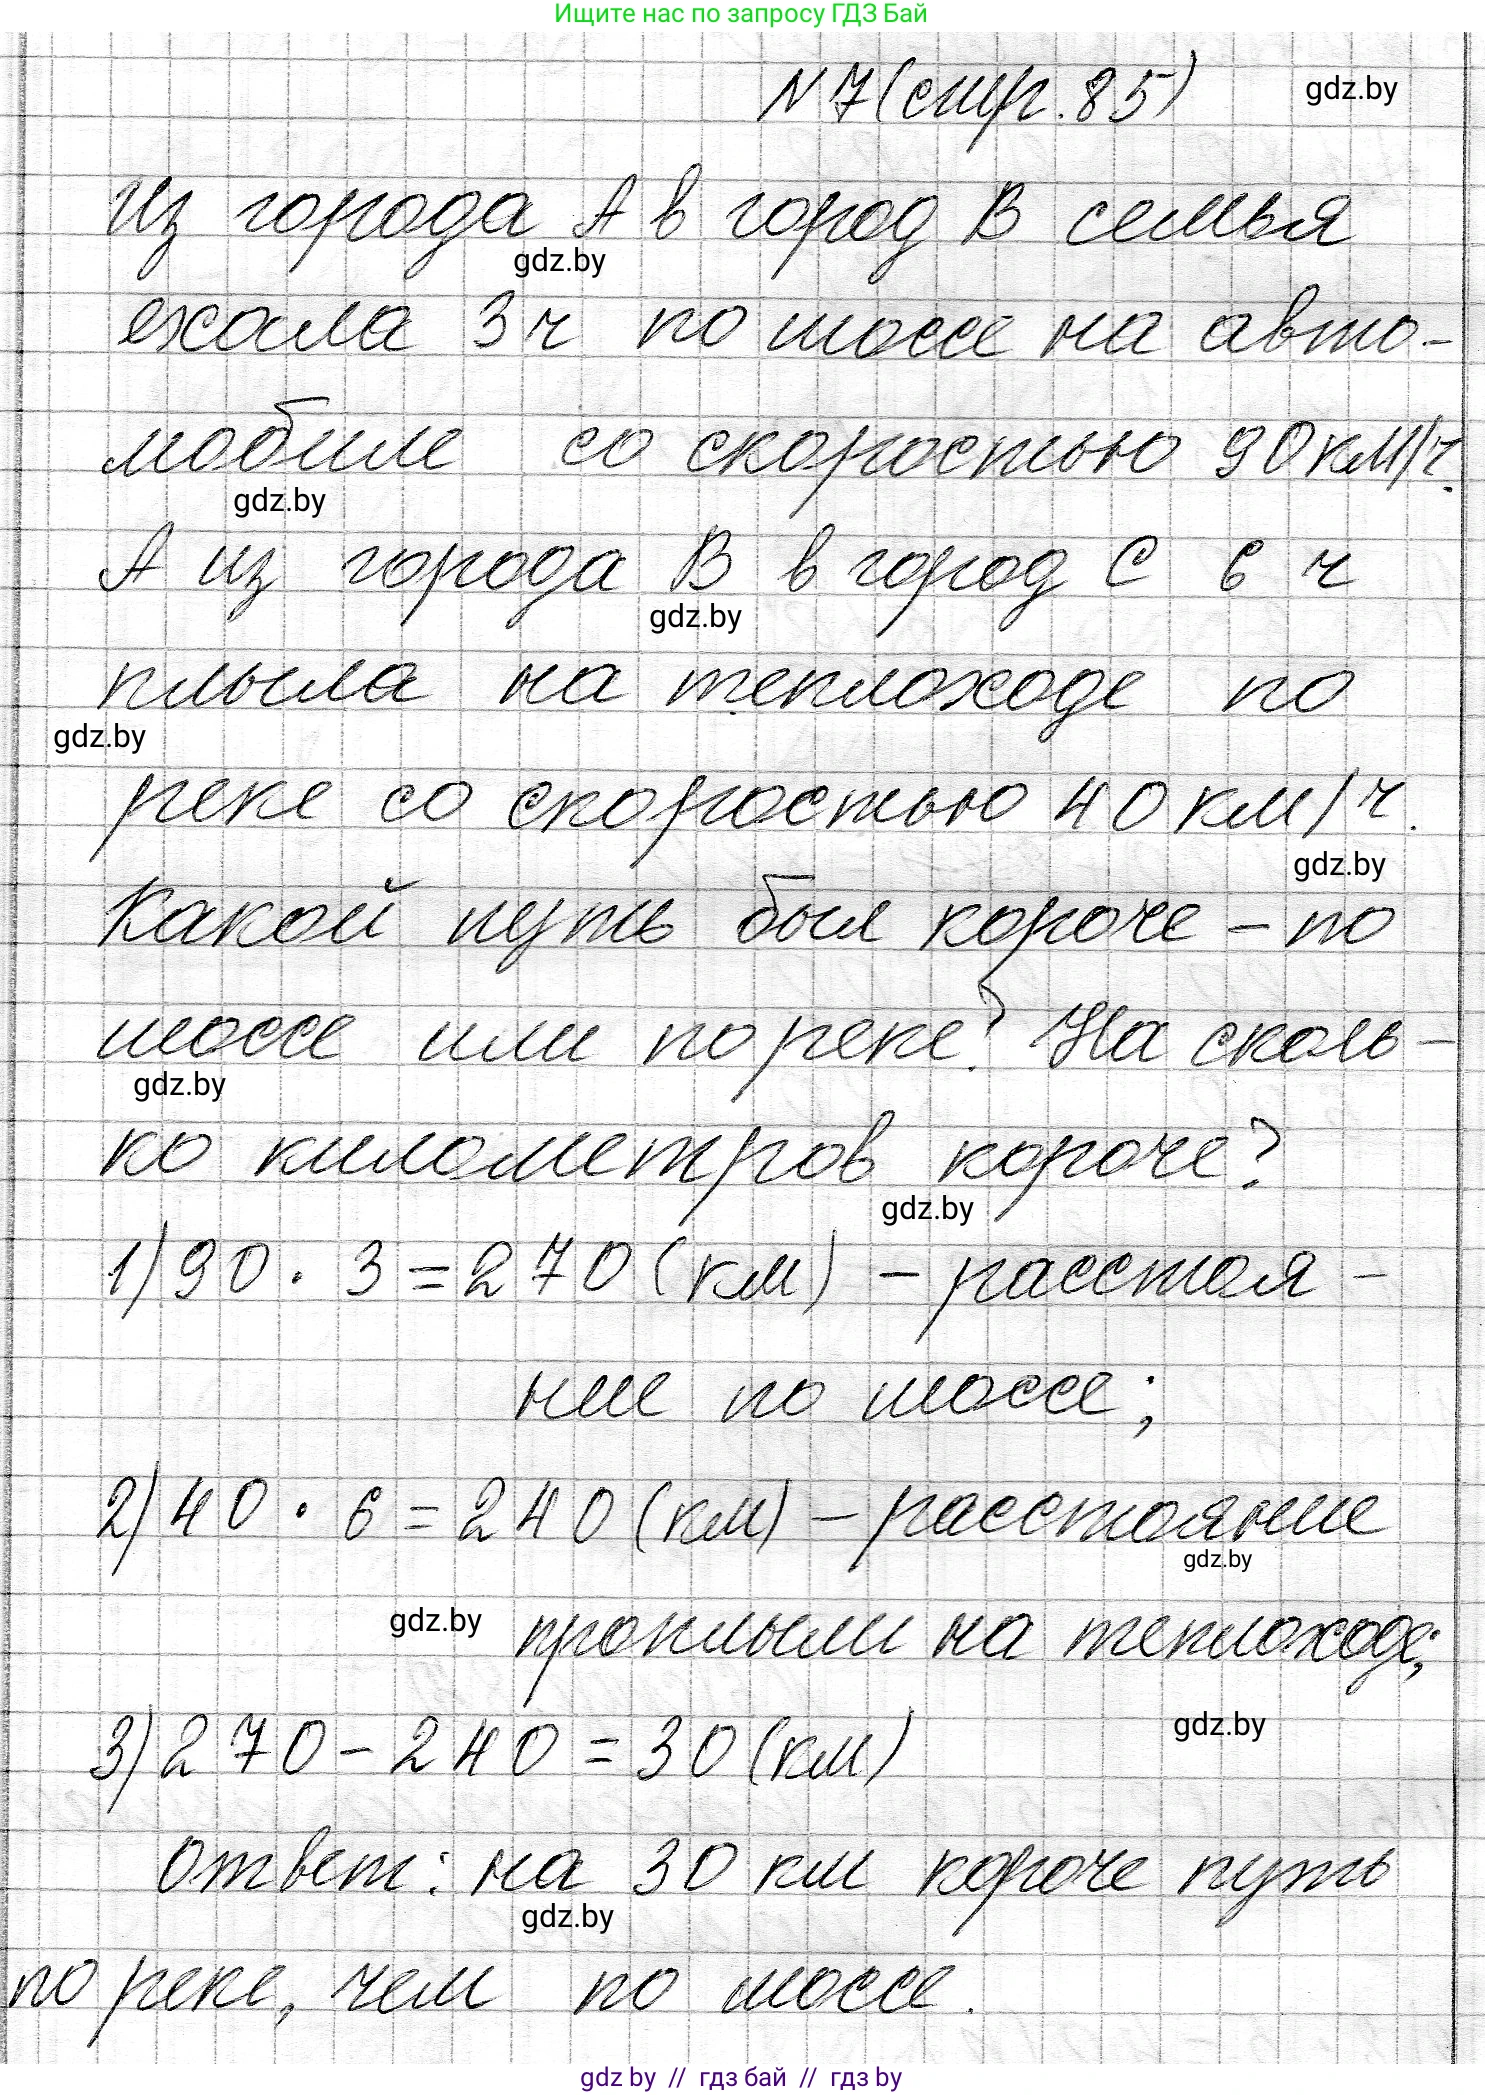 Ищите нас по запросу ГДЗ Бай
N 7 (стр. 85)
gdz.by
Из города А в город В семья
gdz.by
ехала 3 ч по шоссе на авто-
мобиле со скоростью 90 км/ч.
gdz.by
А из города В в город С 6 ч
gdz.by
плыла на теплоходе по
gdz.by
реке со скоростью 40 км/ч.
gdz.by
Какой путь был короче – по
шоссе или по реке? На сколь-
gdz.by
ко километров короче?
gdz.by
1) 90 · 3 = 270 (км) – расстоя-
ние по шоссе;
2) 40 · 6 = 240 (км) – расстояние
gdz.by
gdz.by
проплыли на теплоходе;
gdz.by
3) 270 – 240 = 30 (км)
Ответ: на 30 км короче путь
gdz.by
по реке, чем по шоссе.
gdz by // гдз бай // gdz by